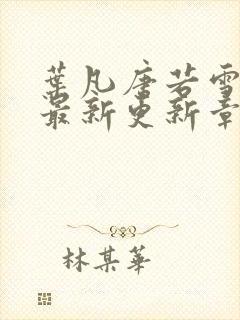 葉凡唐若雪
最新更新章
林某華